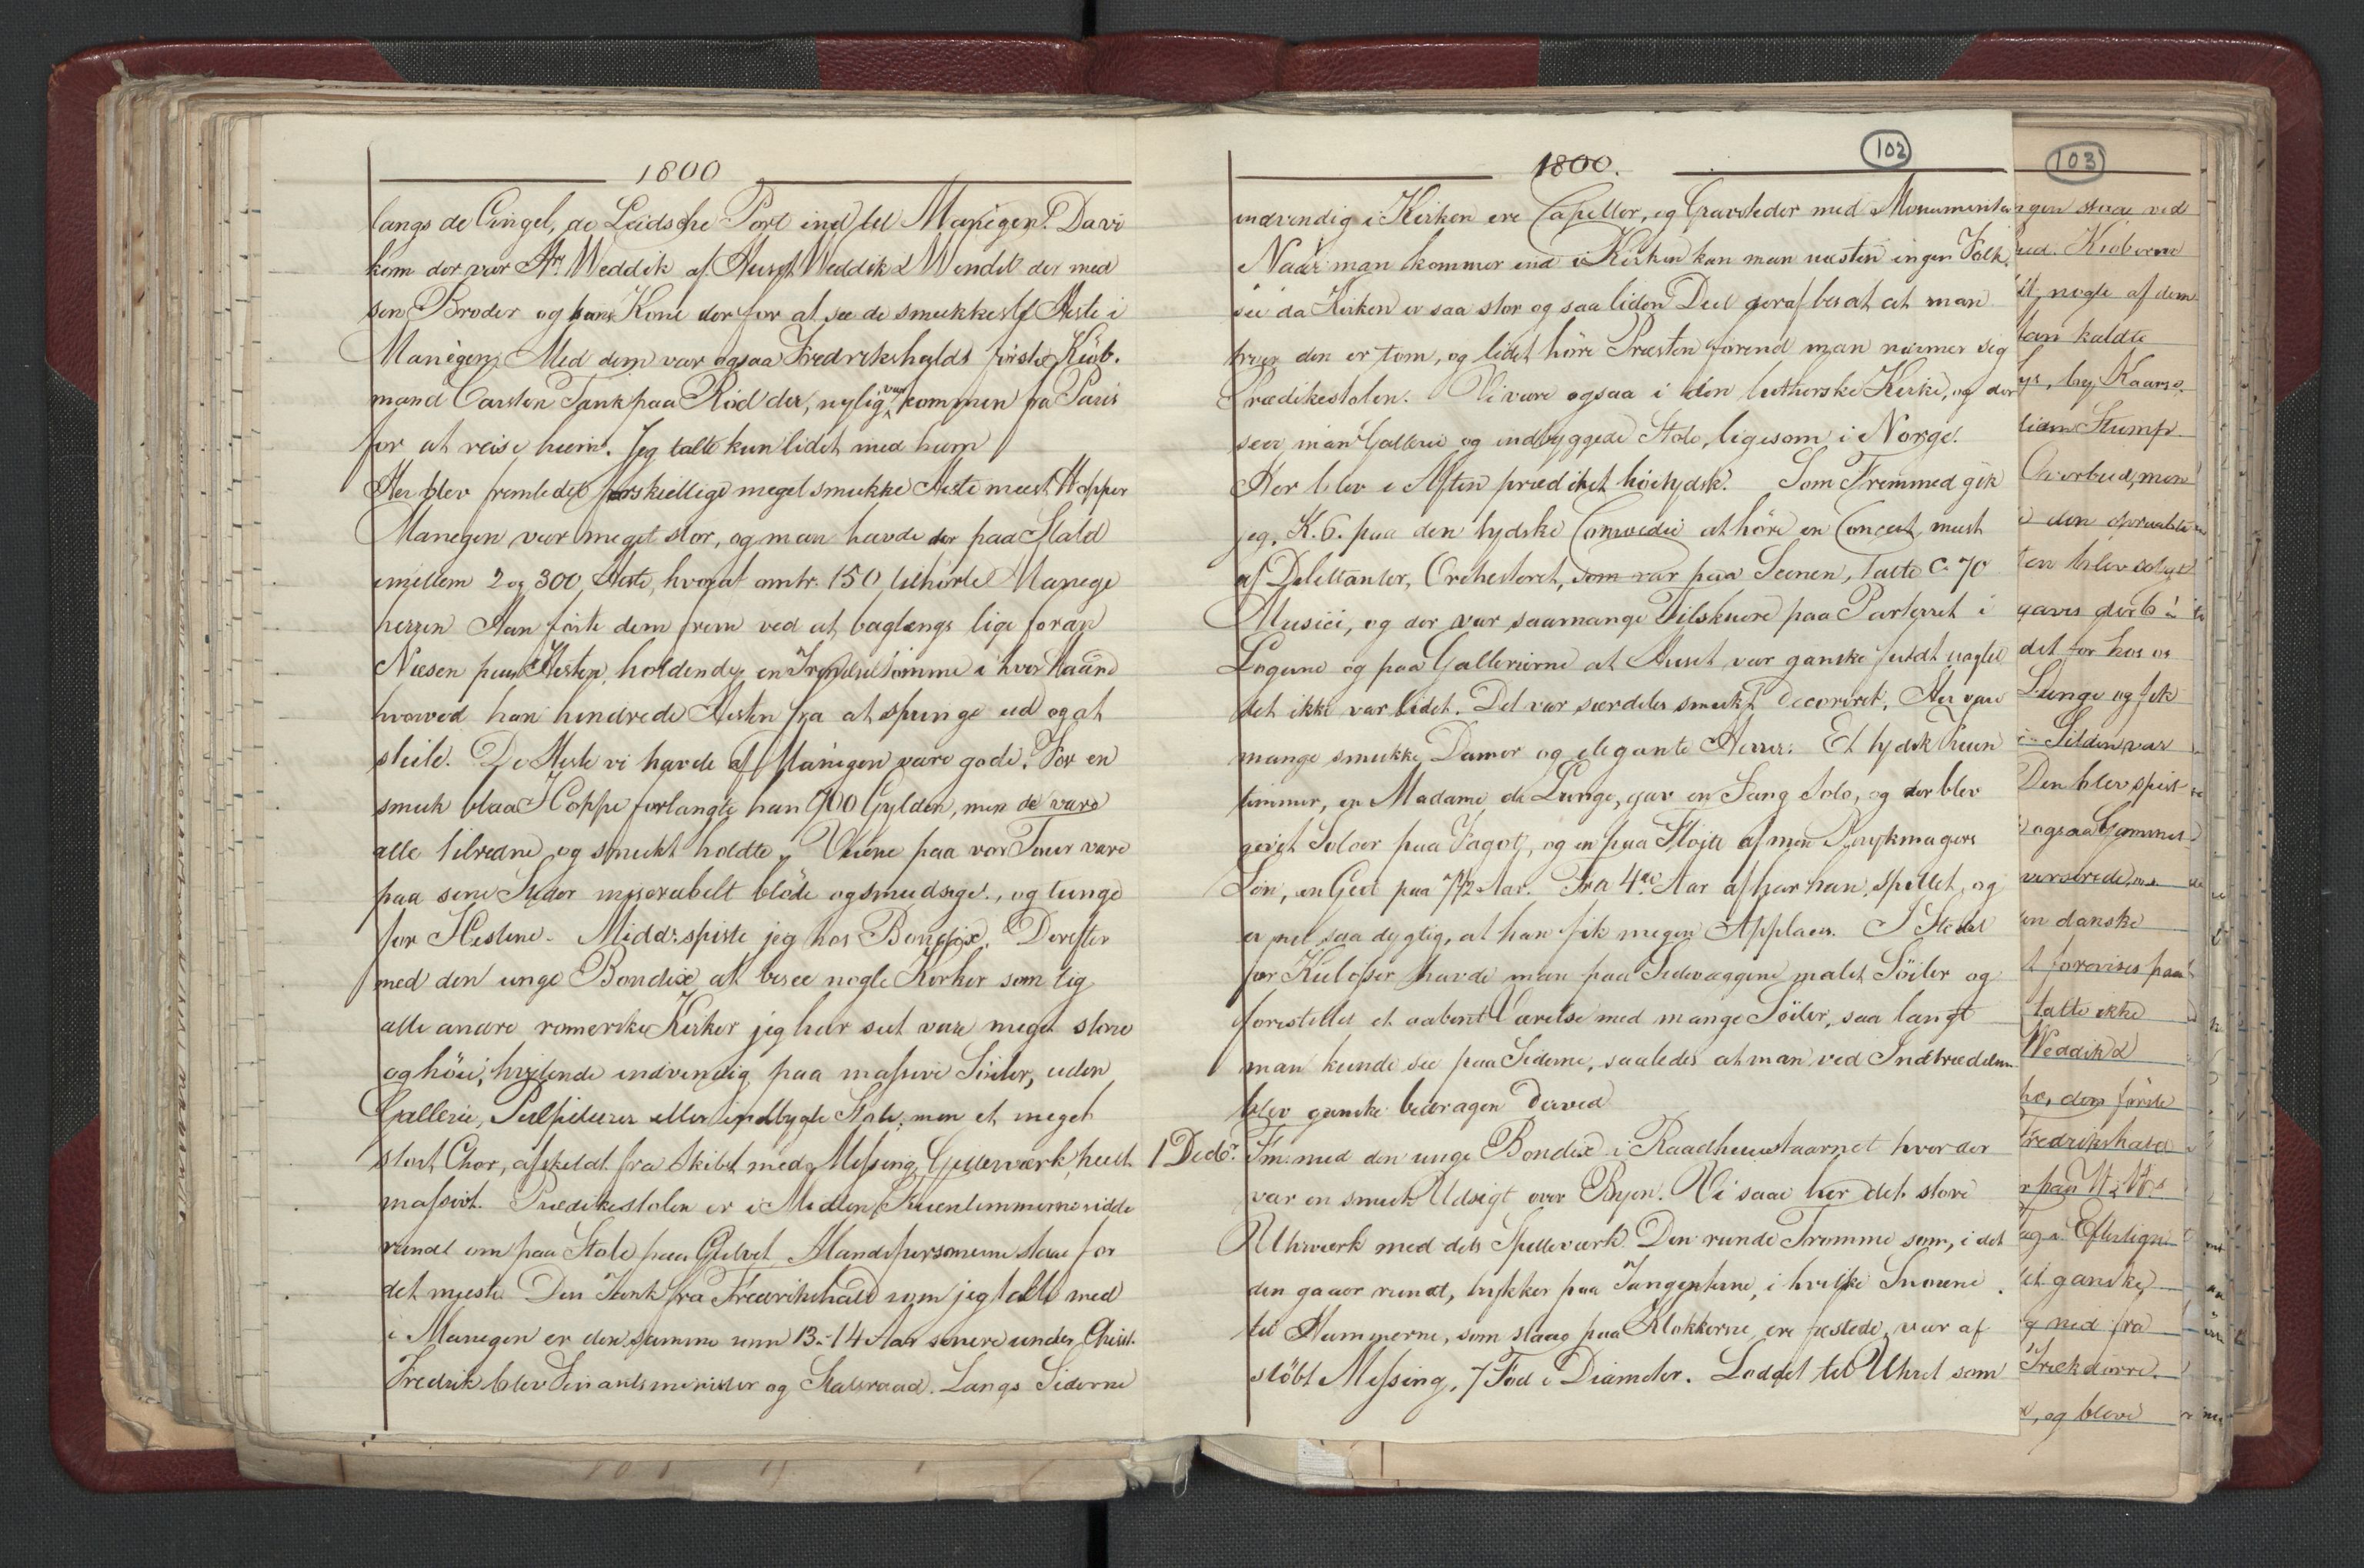 1800
langs de Cingel, de Leidsche Port ind til Manegen. Da vi
kom der var Hr. Weddik af Huset Weddik & Wendel der med
sin Broder og hans Kone der for at see de smukkeste Heste i
Manègen. Med dem var ogsaa Fredrikshalds förste Kiöb-
mand Carsten Tank paa Röd der, nylig var kommen fra Paris
for at reise hiem. Jeg talte kun lidet med ham
Her blev fremledet forskiellige meget smukke Heste meest Hopper
Manegen var meget stor, og man havde der paa Stald
imellem 2 og 300 Heste, hvoraf omtr. 150 tilhörte Manege
herren Han förte dem frem ved at baglængs lige foran
Næsen paa Hesten, holdende en Trendsetömme i hver Haand
hvorved han hindrede Hesten fra at springe ud og at
steile. De Heste vi havde af Manegen vare gode. For en
smuk blaa Hoppe forlangte han 900 Gylden, men de vare
alle tilredne og smukt holdte. Veiene paa vor Tour vare
paa sine Steder miserabelt blöde og smudsige, og tunge
for Hestene. Midd: spiste jeg hos Bondix. Derefter
med den unge Bondix at besee nogle Kirker som lig
alle andre romerske Kirker jeg har seet vare meget store
og höie, hvilende indvendig paa massive Söiler, uden
Gallerie, Pulpiturer eller indbygte Stole, men et meget
stort Chor, afskeldt fra Skibet med Messing Gitterværk, heelt
massivt. Prædikestolen er i Midten Fruentimmerne sidde
rundt om paa Stole paa Gulvet Mandspersonerne staae for
det meste. Den Tank fra Fredrikshald som jeg talte med
i Manegen er den samme som 13-14 Aar senere under Christ.
Fredrik blev Finantsminister og Statsraad. Langs Siderne
1800.
102
indvendig i Kirken ere Capeller, og Gravsteder med Monumenter
Naar man kommer ind i Kirken kan man næsten ingen Folk
see da Kirken er saa stor og saa liden Deel deraf besat at man
troer den er tom, og lidet höre Præsten förend man nærmer sig
Prædikestolen. Vi vare ogsaa i den lutherske Kirke, og der
seer man Gallerie og indbyggede Stole, ligesom i Norge.
Her blev i Aften prædiket höitydsk. Som Fremmed gik
jeg, K. 6. paa den tydske Comoedie at höre en Concert, meest
af Dilettanter, Orchesteret, som var paa Scenen, talte C. 70
Musici, og der var saamange Tilskuere paa Parterret i
Logerne og paa Gallerierne at Huset var ganske fuldt uagtet
det ikke var lidet. Det var særdeles smukt decoreret. Her vare
mange smukke Damer og elegante Herrer. Et tydsk Fruen
timmer, en Madame de Lange, gav en Sang Solo, og der blev
givet Soloer paa Fagot, og en paa Flöjte af min Parykmagers
Sön, en Gut paa 7 1/2 Aar. Fra 4de Aar af har han spillet, og
er nu saa dygtig, at han fik megen Applaus. I Stedet
for Kulisser havde man paa Sidevæggene malet Söiler og
forestillet et aabent Værelse med mange Söiler, saa langt
man kunde see paa Siderne, saaledes at man ved Indtrædelsen
blev ganske bedragen derved
1 Decbr. Fm: med den unge Bondix i Raadhuustaarnet hvor der
var en smuk Udsigt over Byen. Vi saae her det store
Uhrværk med dets Spilleværk. Den runde Tromme som, i det
den gaaer rundt, trykker paa Tangenterne, i hvilke Snorene
til Hammerne, som slaae paa Klokkerne ere fæstede, var af
stöbt Messing, 7 Fod i Diameter. Loddet til Uhret som
103
gen staae ved
ud. Kioberne
it, nogle af dem
tan kaldte
ys, bej Kaarse.
liam Stump.
Overbud, men
i den opraabte
ten blev solgt
gaves der 6
det for hos os
Lunge og fik
Silden var
Den blev spist
ogsaa Gammel
verserede,
en danske
t forevises paa
talte ikke
Weddik &
he, den förste
Fredrikshald
r paa W & W.s
og a Efterligne
et ganske
g ned fra
Trækdörre.
, og bleve